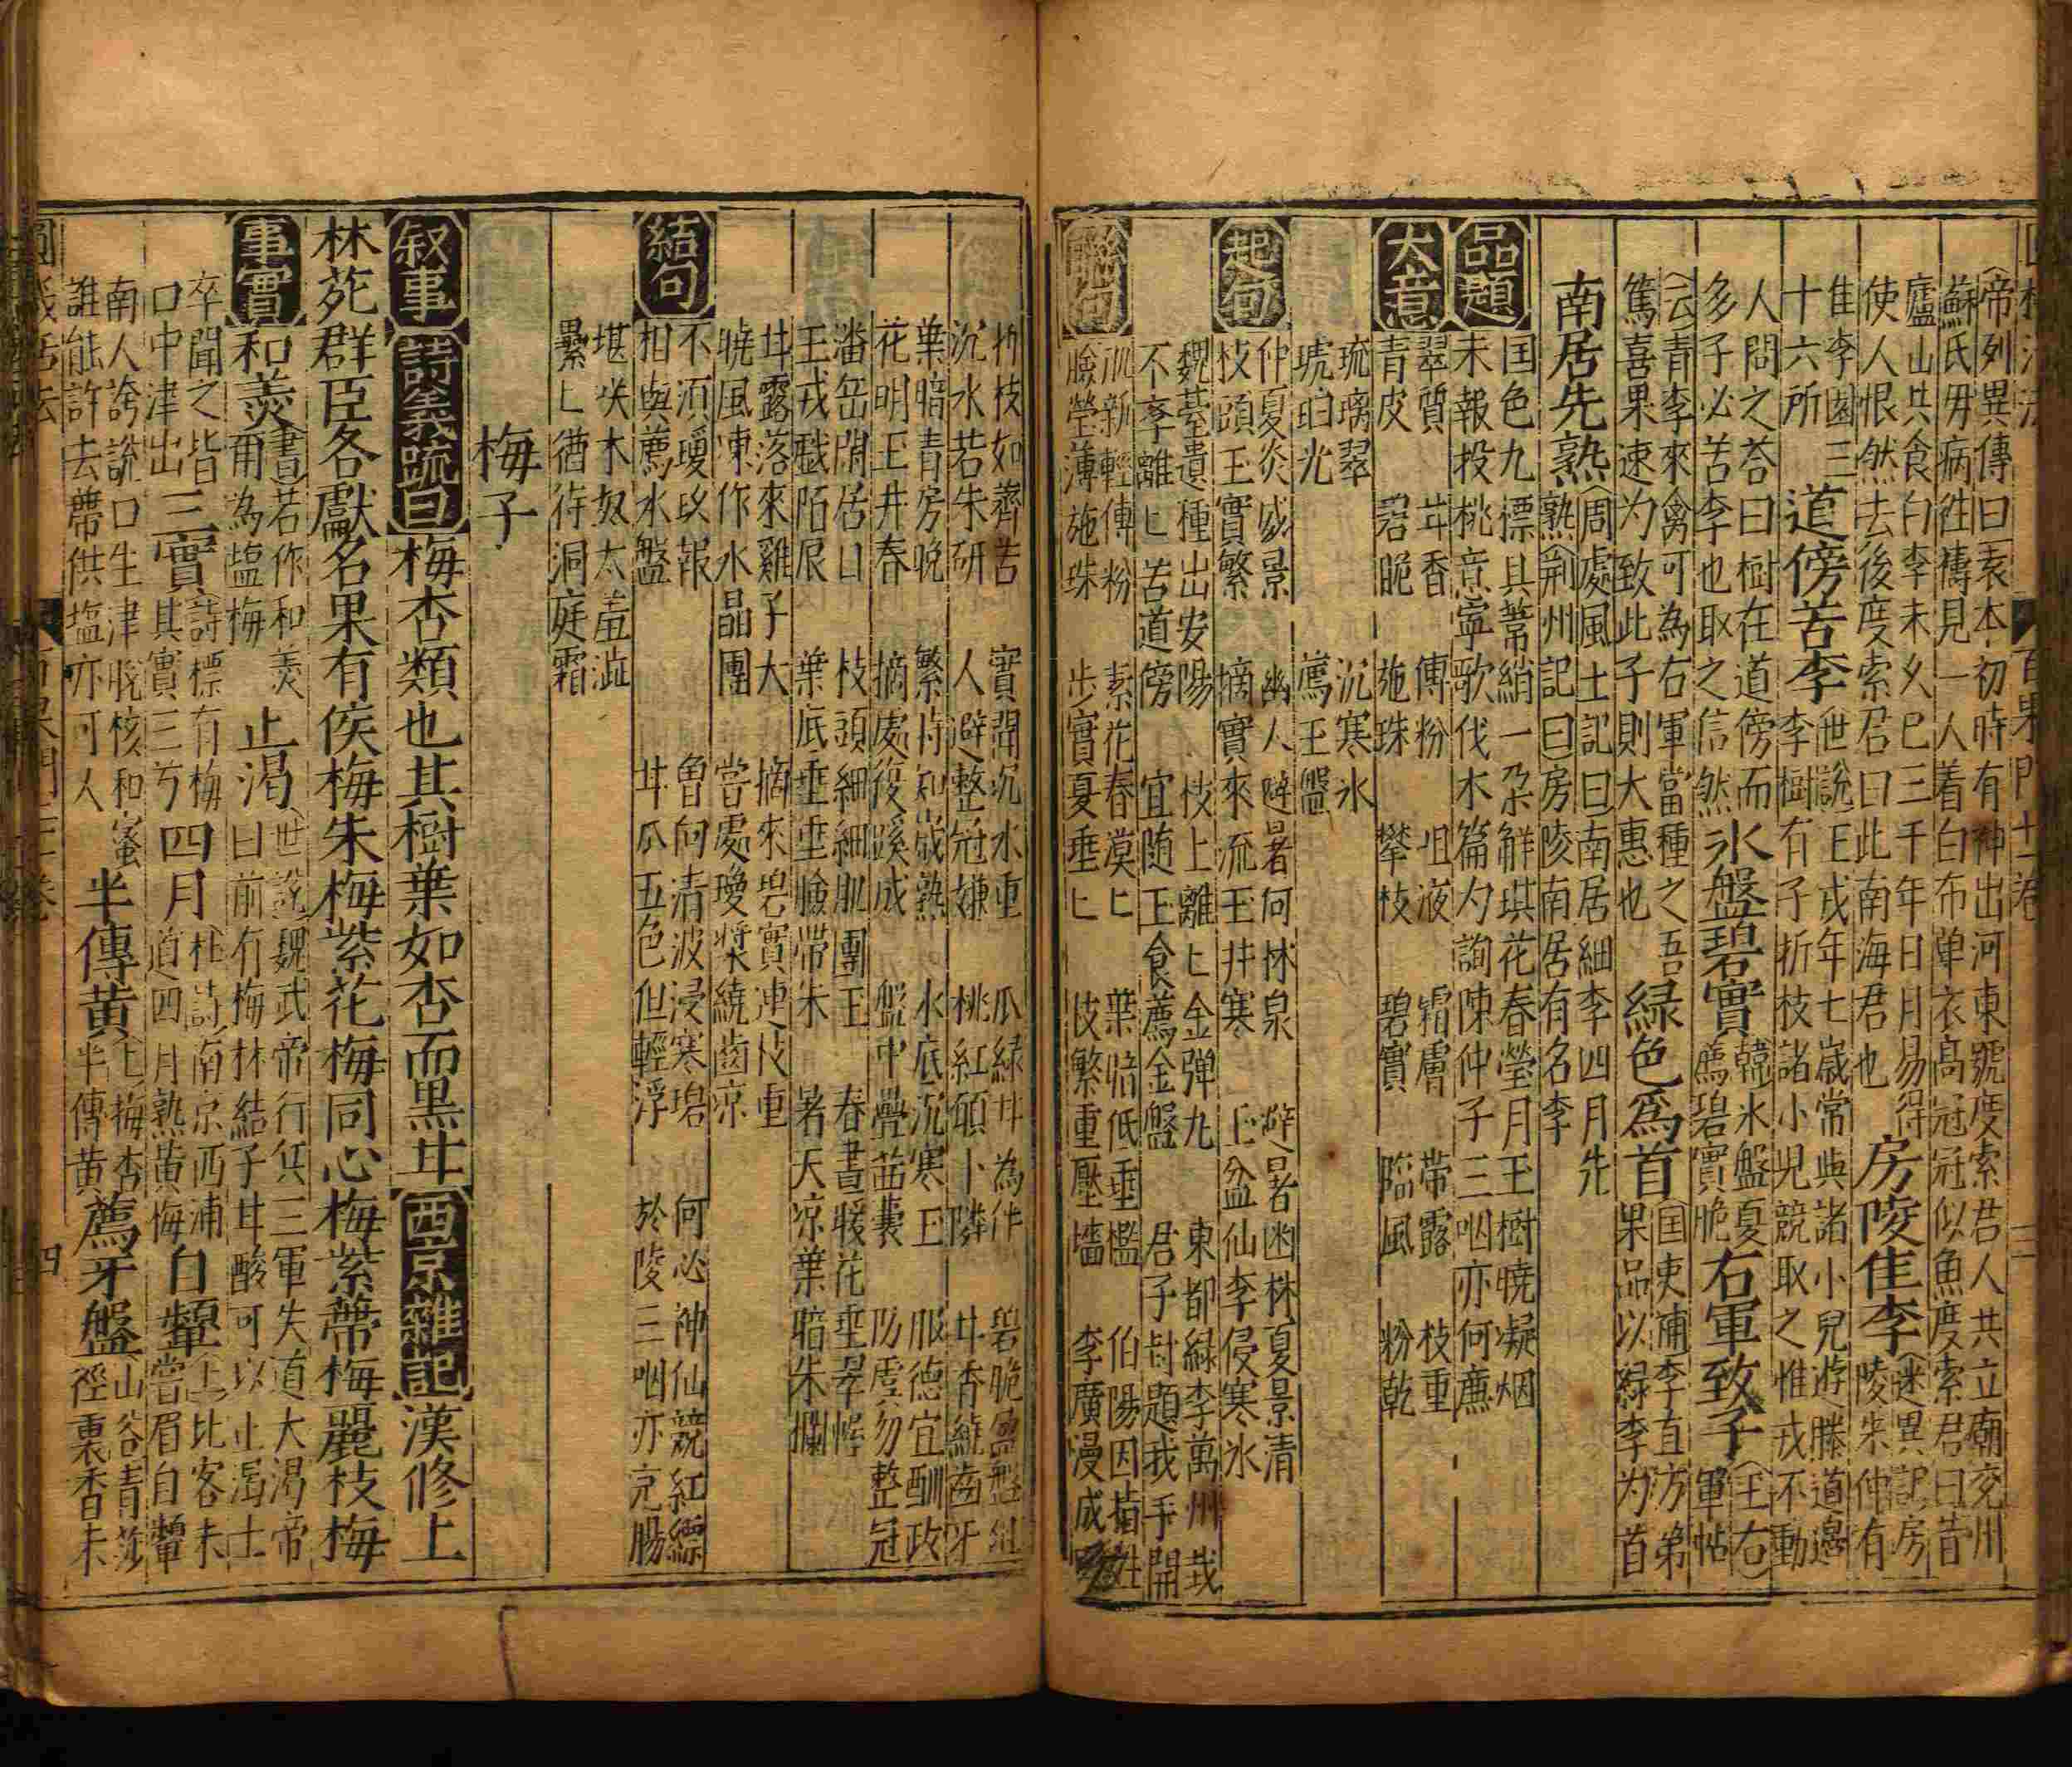 百果門十一卷
三
帝列異傳曰袁本初時有神出河東號度索君人共立廟兗州
蘇氏毋病徃禱見一人着白布單衣高冠冠似魚度索君曰昔
廬山共食白李未久巳三千年日月易得
使人恨然去後度索君曰此南海君也
房陵隹李
述異記房
陵朱仲有
隹李園三
十六所
道傍苦李
世說王戎年七歲常與諸小兒遊滕道邉
李樹有子折枝諸小児競取之惟戎不動
人問之荅曰樹在道傍而
多子必苦李也取之信然
氷盤碧實
韓氷盤夏
薦碧實脆
右軍致子
王右
軍帖
云青李來禽可為右軍當種之吾
篤喜果速为致此子則大惠也
緑色爲首
国吏補李直方弟
果品以緑李为首
南居先熟
周處風土記曰南居細李四月先
熟荆州記曰房陵南居有名李
品題
囯色九標具蒂綃一朶觧琪花春瑩月王樹曉凝烟
未報投桃意寧歌伐木篇勺詢陳仲子三咽亦何㢘
大意
翠質 甘香 傅粉 咀液 霜膚 帶露 枝重
青皮 碧脆 施珠 攀枝 碧實 臨風 粉乾
琉璃翠 沉寒氷
琥珀光 薦玉盤
起句
仲夏炎威景 幽人避暑何林泉 避暑幽林夏景清
枝頭玉實繁 摘實來流玉井寒 玉盆仙李侵寒氷
魏臺遺種出安陽 枝上離匕金彈九 東都緑李萬州栽
不李離匕苦道傍 宜随玉食薦金盤 君子封題我手開
聯句
肌新輕傅粉 素花春漠匕 葉暗低垂檻 伯陽因指姓
臉瑩薄施珠 步實夏垂匕 枝繁重壓墻 李廣漫成
折枝如薺苦 實聞沉水重 瓜緑甘為伴 碧脆盈盤
沉水若朱研 人避整冠嫌 桃紅碩卜隣 甘香繞齒牙
葉暗青房晚 繁時知歲熟 水底沉寒玉 服德宜酬政
花明玉井春 摘處後蹊成 盤中疊茜裠 防虞勿整冠
潘岳閑居日 枝頭細細肌團玉 春晝暖花垂翠幄
王戎戲陌辰 葉底垂垂臉帶朱 暑天凉葉暗朱攔
甘露落來雞子大 摘來碧實連枝重
曉風凍作水晶團 嘗處瓊漿繞齒凉
結句
不湏瓊玖報 曽向清波浸寒碧 何必神仙競紅縹
相與薦水盤 甘瓜五色但輕浮 於陵三咽亦充腸
堪咲木奴太羞澁
纍匕猶待洞庭霜
梅子
叙事
詩義䟽曰梅杏類也其樹葉如杏而黒甘西京雜記漢修上
林苑群臣各獻名果有侯梅朱梅紫花梅同心梅紫蔕梅麗枝梅
事實
和羮
書若作和羮
爾為塩梅
止渴
世說魏武帝行兵三軍失道大渴帝
曰前有梅林結子甘酸可以止渴士
卒聞之皆
口中津出
三實
詩標有梅
其實三兮
四月
杜詩南京西浦
道四月熟黄梅
白顰
上比客未
嘗眉自顰
南人誇說口生津脫核和蜜
誰能許去蔕供塩亦可人
半傳黄
上梅杏
半傳黄
薦牙盤
山谷青莎
徑裏香未
四